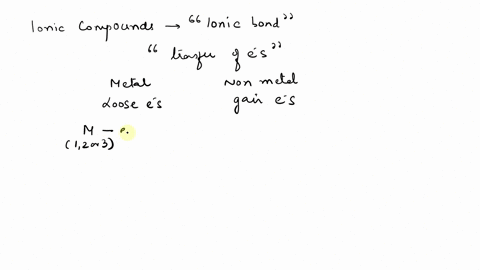 Ionic Compounds → "Ionic bond"
"transfer of e⁻s"
Metal Non metal
Loose e⁻s gain e⁻s
M — e
(1,2 or 3)